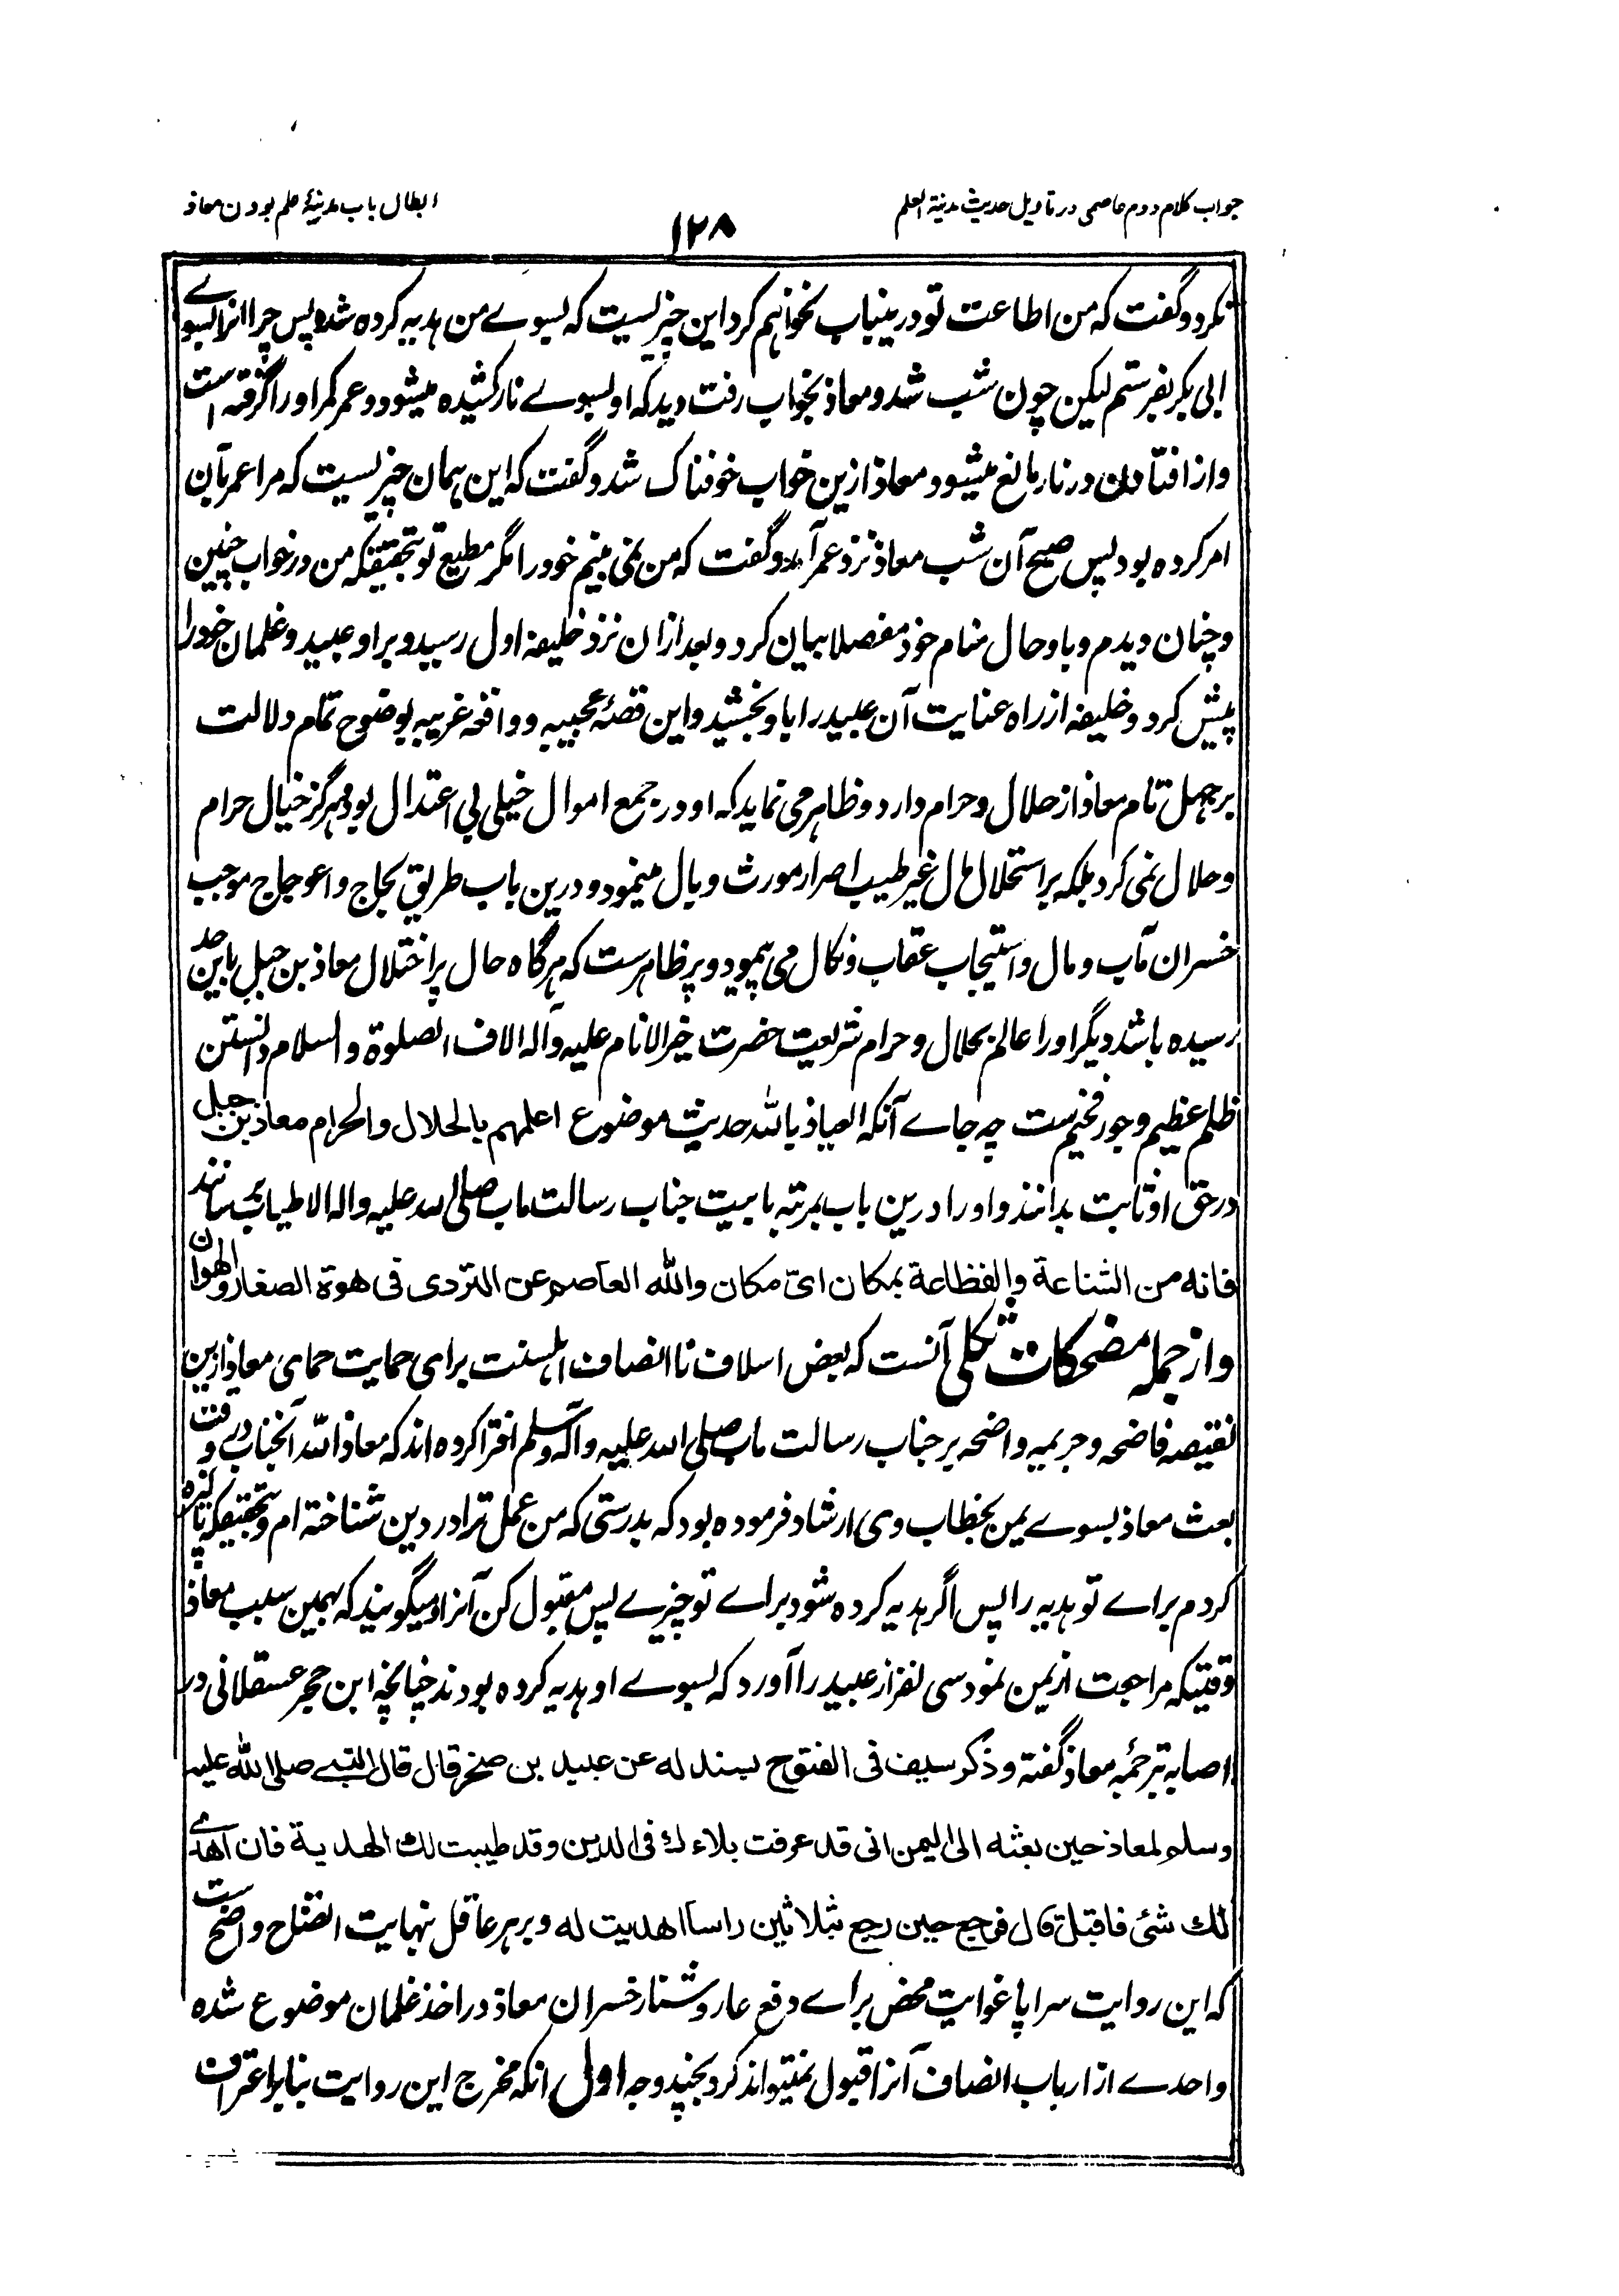 جواب کلام دوم عاصمی در تاویل حدیث مدینة العلم
۱۲۸
ابطال باب مدینۂ علم بودن معاذ
نکرد و گفت که من اطاعت تو درینباب نخواهم کرد این چیزیست که بسوے من هدیه کرده شد پس چرا انرا بسوے
ابی بکر بفرستم لیکن چون شب شد و معاذ بخواب رفت دید که او بسوے نار کشیده میشود و عمر کمر او را گرفته است
و از افتادن در نار مانع میشود و معاذ ازین خواب خوفناک شد و گفت که این همان چیزیست که مرا عمر بآن
امر کرده بود پس صبح آن شب معاذ نزد عمر آمد و گفت که من نمی بینم خود را مگر مطیع تو بتحقیقکه من در خواب چنین
و چنان دیدم و باو حال منام خود مفصلا بیان کرد و بعد ازان نزد خلیفه اول رسید و براو عبید و غلمان خود را
پیش کرد و خلیفه از راه عنایت آن عبید را باو بخشید و این قصۂ عجیبه و واقعه غریبه بوضوح تمام دلالت
بر جهل تام معاذ از حلال و حرام دارد و ظاهر می نماید که او در جمع اموال خیلی بی اعتدال بود و هرگز خیال حرام
و حلال نمی کرد بلکه بر استحلال مال غیر طیب اصرار مورث وبال مینمود و درین باب طریق لجاج و اعوجاج موجب
خسران مآب و مال و استیجاب عقاب و نکال می پیمود و پر ظاهرست که هرگاه حال پر اختلال معاذ بن جبل باین حد
رسیده باشد دیگر او را عالم بحلال و حرام شریعت حضرت خیر الانام علیه و آله الاف الصلوة و السلام دانستن
ظلم عظیم و جور فخیم ست چه جاے آنکه العیاذ بالله حدیث موضوع اعلمهم بالحلال والحرام معاذ بن جبل
در حق او ثابت بدانند و او را درین باب بمرتبه بابیت جناب رسالت مآب صلی الله علیه واله الاطیاب برسانند
فانه من الشناعة والفظاعة بمکان ایّ مکان والله العاصم عن التردی فی هوة الصغار والهوان
و از جمله مضحکات ثکلی آنست که بعض اسلاف نا انصاف اهلسنت برای حمایت حمای معاذ ازین
نقیصه فاضحه و جریمه واضحه بر جناب رسالت مآب صلی الله علیه وآله وسلم افترا کرده اند که معاذ الله آنجناب در وقت
بعث معاذ بسوے یمن بخطاب وی ارشاد فرموده بود که بدرستی که من عمل ترا در دین شناخته ام و بتحقیقکه پاکیزه
کردم براے تو هدیه را پس اگر هدیه کرده شود براے تو چیزے پس مقبول کن آنرا و میگویند که بهمین سبب معاذ
وقتیکه مراجعت از یمن نمود سی نفر از عبید را آورد که بسوے او هدیه کرده بودند چنانچه ابن حجر عسقلانی در
اصابه بترجمۂ معاذ گفته و ذکر سیف فی الفتوح بسند له عن عبید بن صخر قال قال النبے صلی الله علیه
وسلم لمعاذ حین بعثه الی الیمن انی قد عرفت بلاءک فی الدین و قد طیبت لک الهدیة فان اهدے
لک شئ فاقبل قال فرجع حین رجع بثلاثین راسا اهدیت له و بر هر عاقل نهایت اتضاح واضح ست
که این روایت سراپا غوایت محض براے دفع عار و شنار خسران معاذ در اخذ غلمان موضوع شده
واحدے از ارباب انصاف آنرا قبول نمیتواند کرد بچند وجه اول انکه مخرج این روایت بنا بر اعتراف